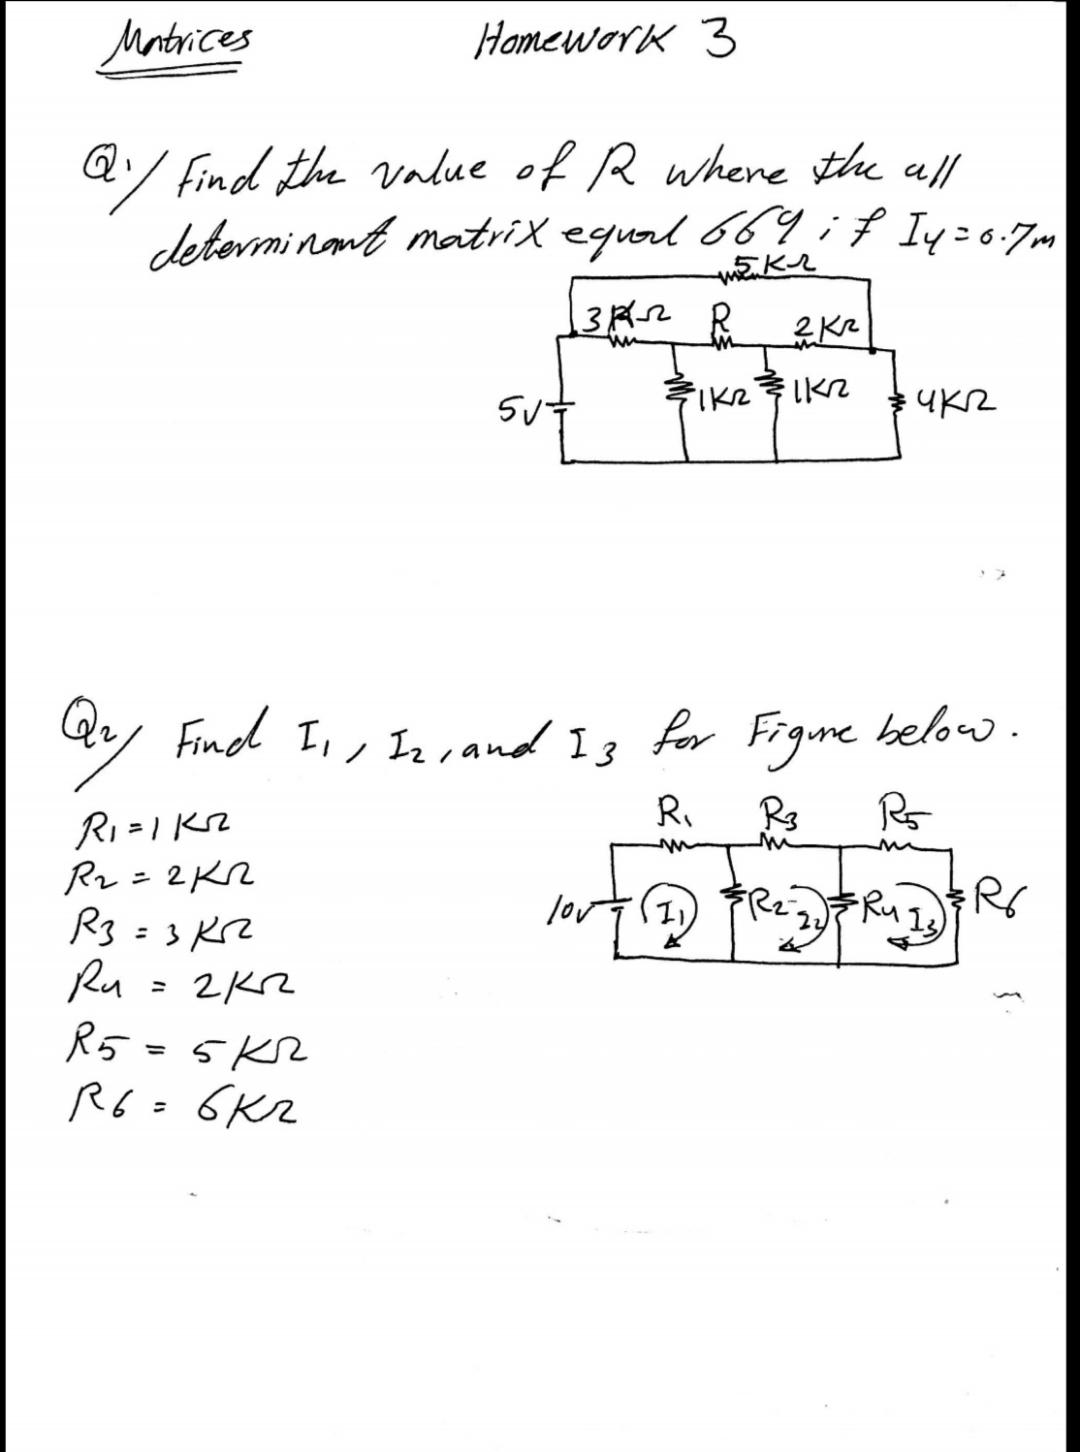 Matrices Homework 3
Q1/ Find the value of R where the all
determinant matrix equal 669 if I4=0.7m
5KΩ
3KΩ R 2KΩ
5V 1KΩ 1KΩ 4KΩ
Q2/ Find I1, I2, and I3 for Figure below.
R1=1KΩ
R2=2KΩ
R3=3KΩ
R4=2KΩ
R5=5KΩ
R6=6KΩ
R1 R3 R5
10V I1 R2 I2 R4 I3 R6